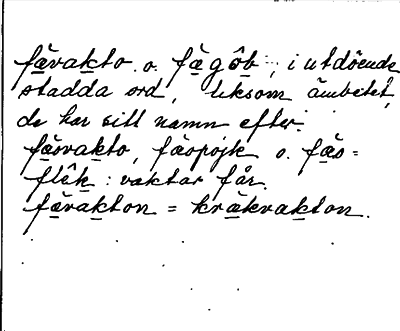 fävakto o. fägôb, i utdöende
stadda ord, liksom ämbetet,
de har sitt namn efter.
fäsvakto, fäspojk o. fäs=
flêk: vaktar får.
fävakton = kräkvakton.